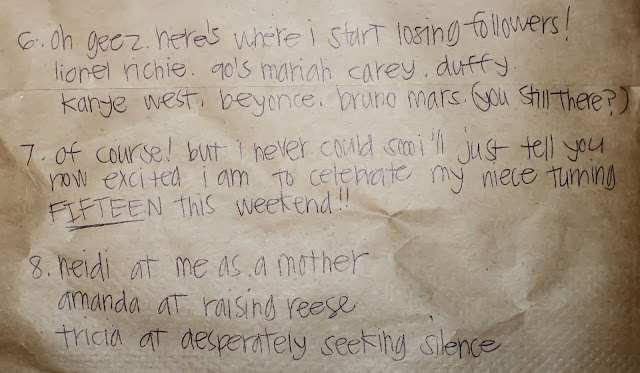 6. oh geez. here's where i start losing followers!
lionel richie. 90's mariah carey. duffy.
kanye west. beyonce. bruno mars. (you still there?)
7. of course! but i never could sooo i'll just tell you
how excited i am to celebrate my niece turning
FIFTEEN this weekend!!
8. heidi at me as a mother
amanda at raising reese
tricia at desperately seeking silence